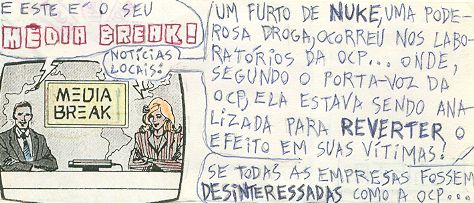 E ESTE É O SEU
MÉDIA BREAK!
NOTÍCIAS
LOCAIS:
MEDIA
BREAK
UM FURTO DE NUKE, UMA PODE-
ROSA DROGA, OCORREU NOS LABO-
RATÓRIOS DA OCP... ONDE,
SEGUNDO O PORTA-VOZ DA
OCP, ELA ESTAVA SENDO ANA-
LIZADA PARA REVERTER O
EFEITO EM SUAS VÍTIMAS.
SE TODAS AS EMPRESAS FOSSEM
DESINTERESSADAS COMO A OCP...